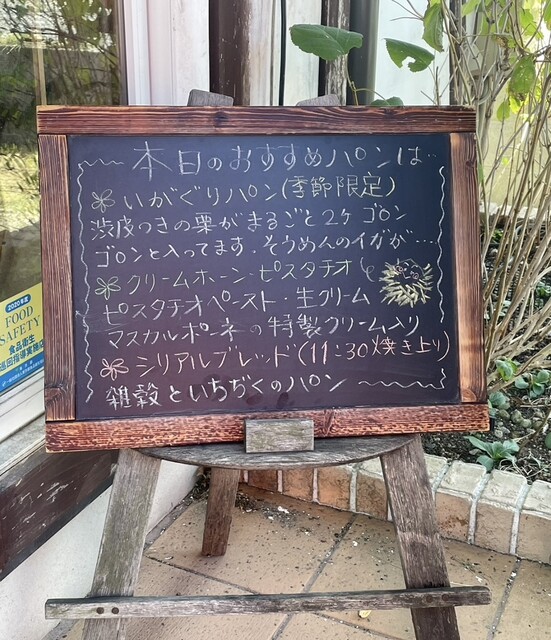 本日のおすすめパンは‥
いがぐりパン(季節限定)
渋皮つきの栗がまるごと2ヶゴロン
ゴロンと入ってます。そうめんのイガが…
クリームホーン・ピスタチオ
ピスタチオペースト・生クリーム
マスカルポーネの特製クリーム入り
シリアルブレッド(11:30焼き上り)
雑穀といちぢくのパン
2020年度
FOOD
SAFETY
食品衛生
巡回指導実施店